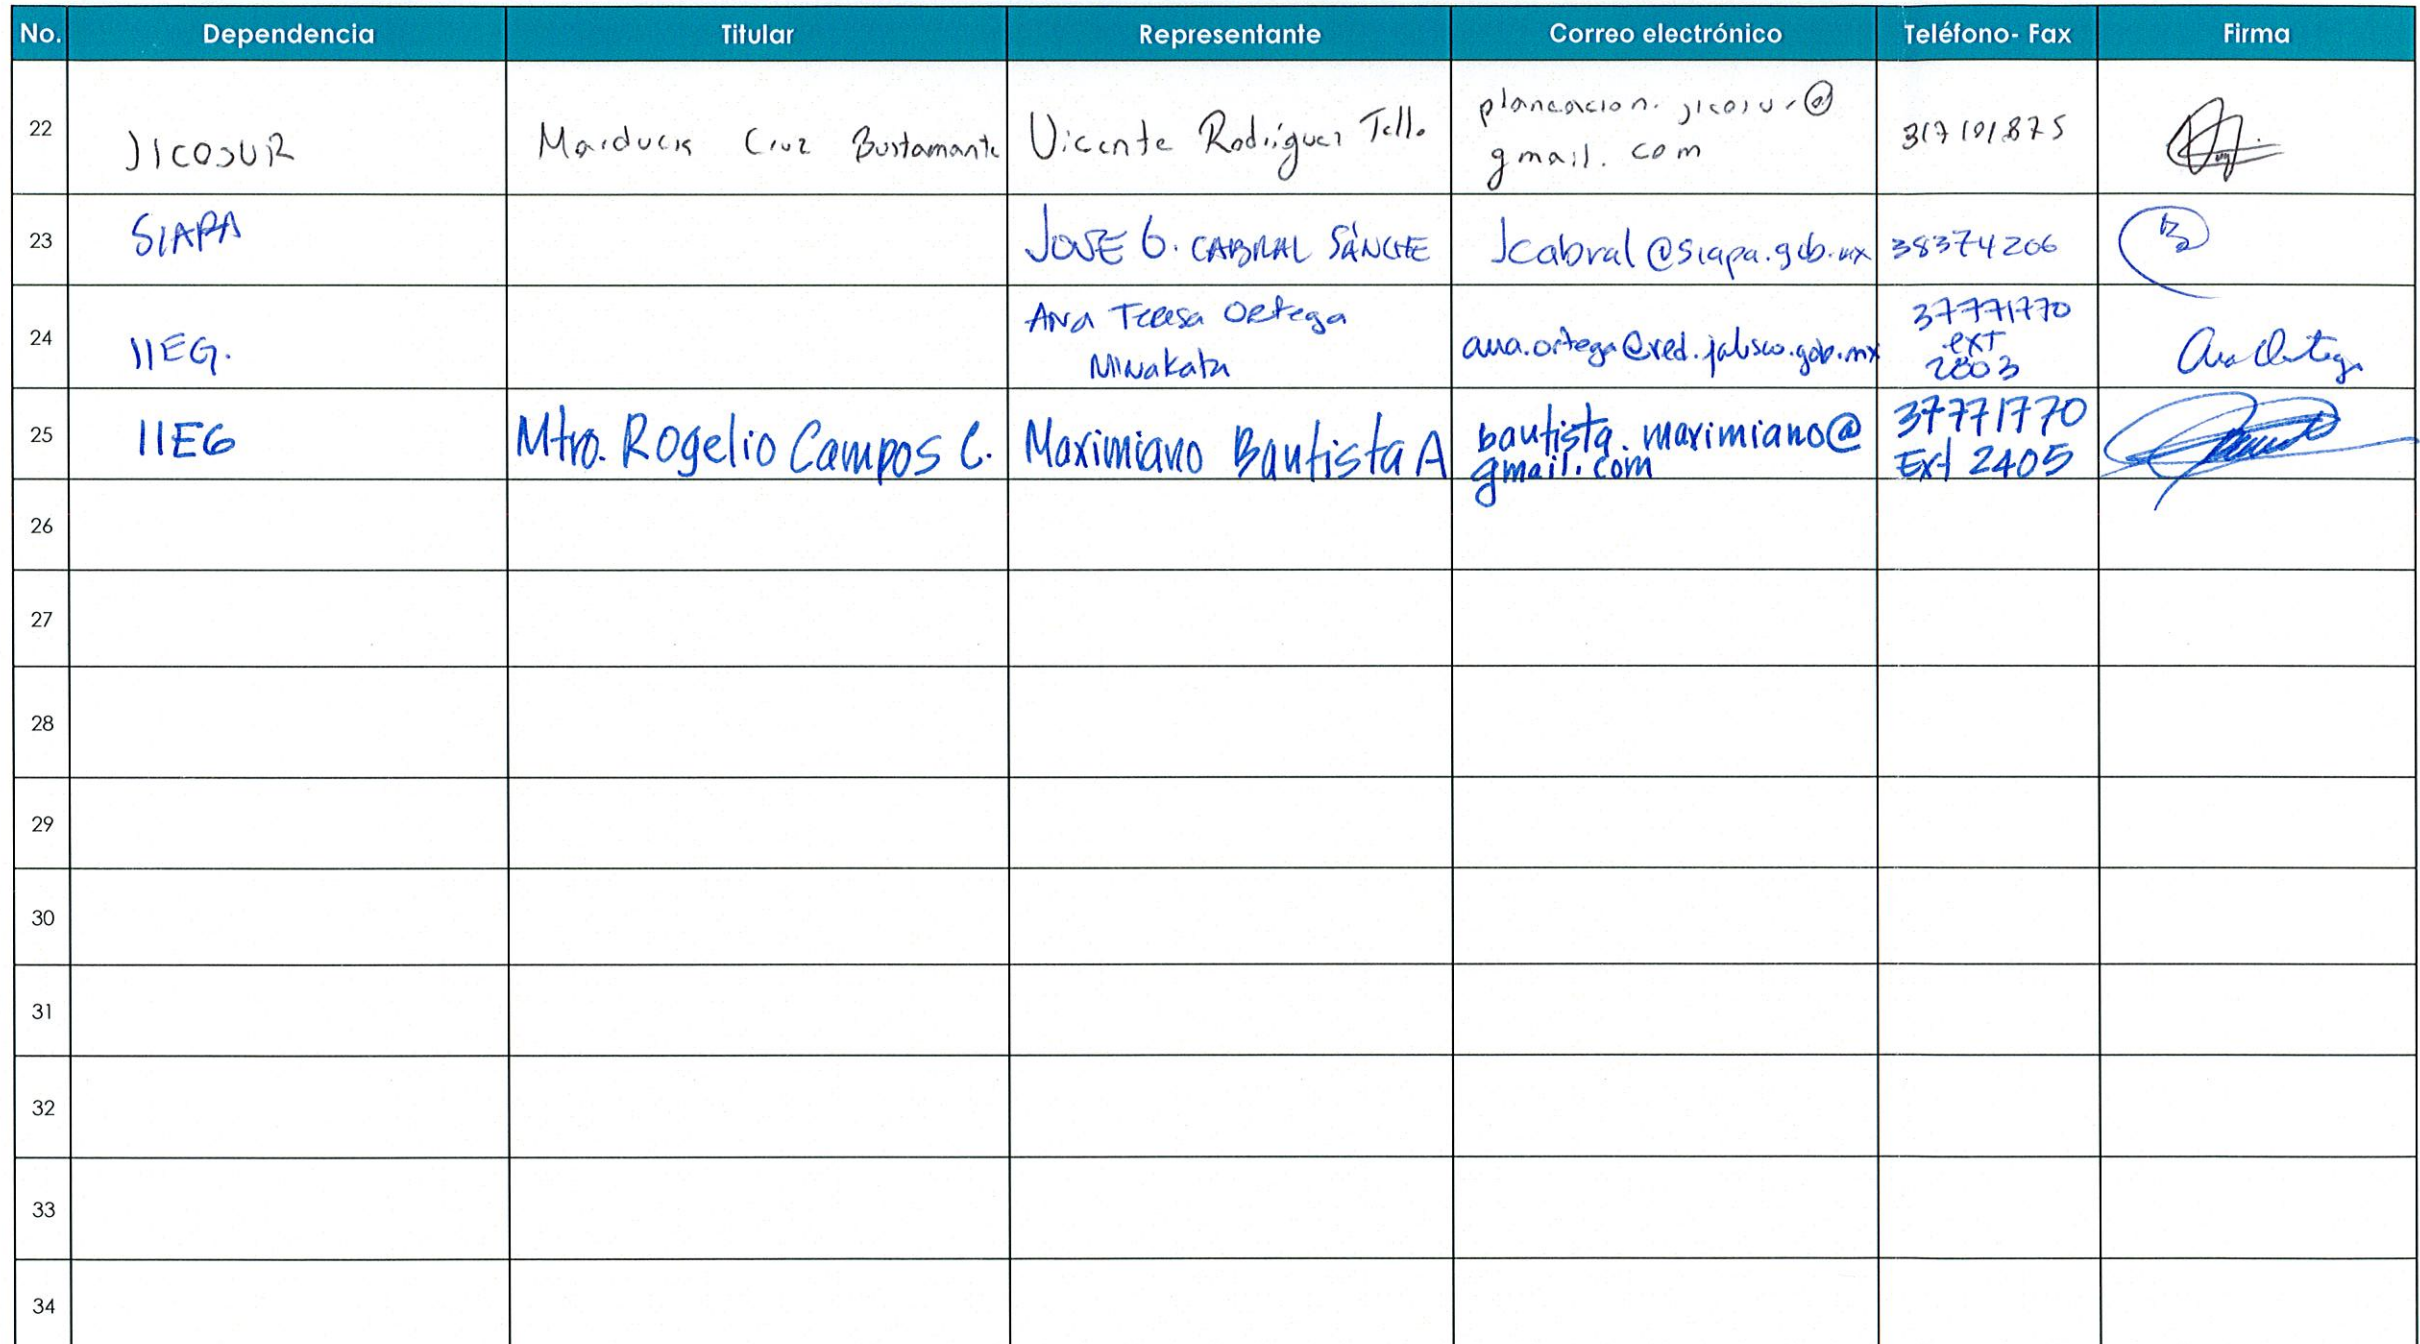 No. Dependencia Titular Representante Correo electrónico Teléfono- Fax Firma
22 JICOSUR Cruz Bustamante Vicente Rodríguez Tello planeacion.jicosur@
gmail.com 317101875
23 SIAPA JOSE G. CABRAL SÁNCHE Jcabral@siapa.gob.mx 38374206
24 IIEG. Ana Teresa Ortega
Minakata ana.ortega@red.jalisco.gob.mx 37771770
ext
2803 Ana Ortega
25 IIEG Mtro. Rogelio Campos C. Maximiano Bautista A bautista.maximiano@
gmail.com 37771770
Ext 2405
26
27
28
29
30
31
32
33
34